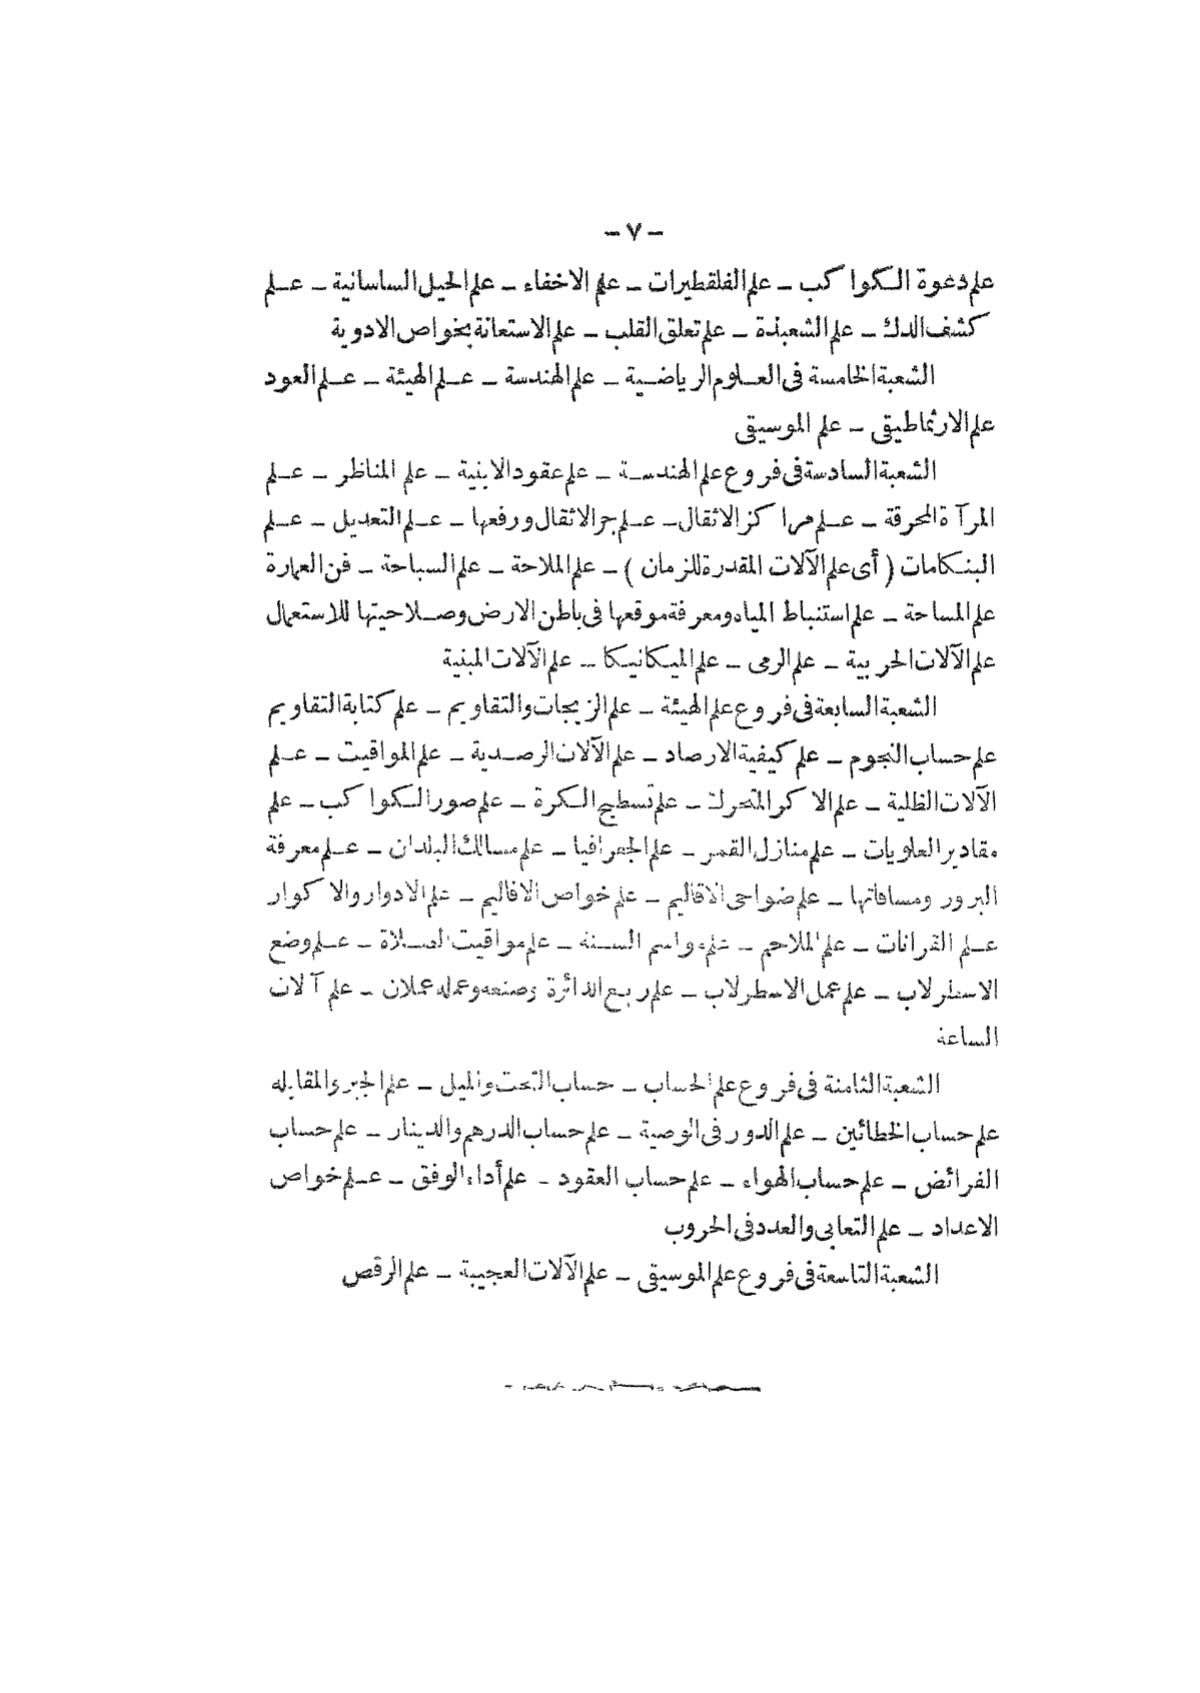 – ٧ –
علم دعوة الكواكب – علم الفلقطيرات – علم الاخفاء – علم الحيل الساسانية – علم
كشف الدك – علم الشعبذة – علم تعلق القلب – علم الاستعانة بخواص الادوية
الشعبة الخامسة فى العلوم الرياضية – علم الهندسة – علم الهيئة – علم العود
علم الارثماطيقى – علم الموسيقى
الشعبة السادسة فى فروع علم الهندسة – علم عقود الابنية – علم المناظر – علم
المرآة المحرقة – علم مراكز الاثقال – علم جر الاثقال ورفعها – علم التعديل – علم
البنكامات ( أى علم الآلات المقدرة للزمان ) – علم الملاحة – علم السباحة – فن العمارة
علم المساحة – علم استنباط المياه ومعرفة موقعها فى باطن الارض وصلاحيتها للاستعمال
علم الآلات الحربية – علم الرمى – علم الميكانيكا – علم الآلات المبنية
الشعبة السابعة فى فروع علم الهيئة – علم الزيجات والتقاويم – علم كتابة التقاويم
علم حساب النجوم – علم كيفية الارصاد – علم الآلات الرصدية – علم المواقيت – علم
الآلات الظلية – علم الاكر المتحرك – علم تسطيح الكرة – علم صور الكواكب – علم
مقادير العلويات – علم منازل القمر – علم الجغرافيا – علم مسالك البلدان – علم معرفة
البرور ومسافاتها – علم ضواحى الاقاليم – علم خواص الاقاليم – علم الادوار والاكوار
علم القرانات – علم الملاحم – علم مواسم السنة – علم مواقيت الصلاة – علم وضع
الاسطرلاب – علم عمل الاسطرلاب – علم ربع الدائرة وصنعه وعمله عملان – علم آلات
الساعة
الشعبة الثامنة فى فروع علم الحساب – حساب التخت والميل – علم الجبر والمقابله
علم حساب الخطائين – علم الدور فى الوصية – علم حساب الدرهم والدينار – علم حساب
الفرائض – علم حساب الهواء – علم حساب العقود – علم أداء الوفق – علم خواص
الاعداد – علم التعابى والعدد فى الحروب
الشعبة التاسعة فى فروع علم الموسيقى – علم الآلات العجيبة – علم الرقص